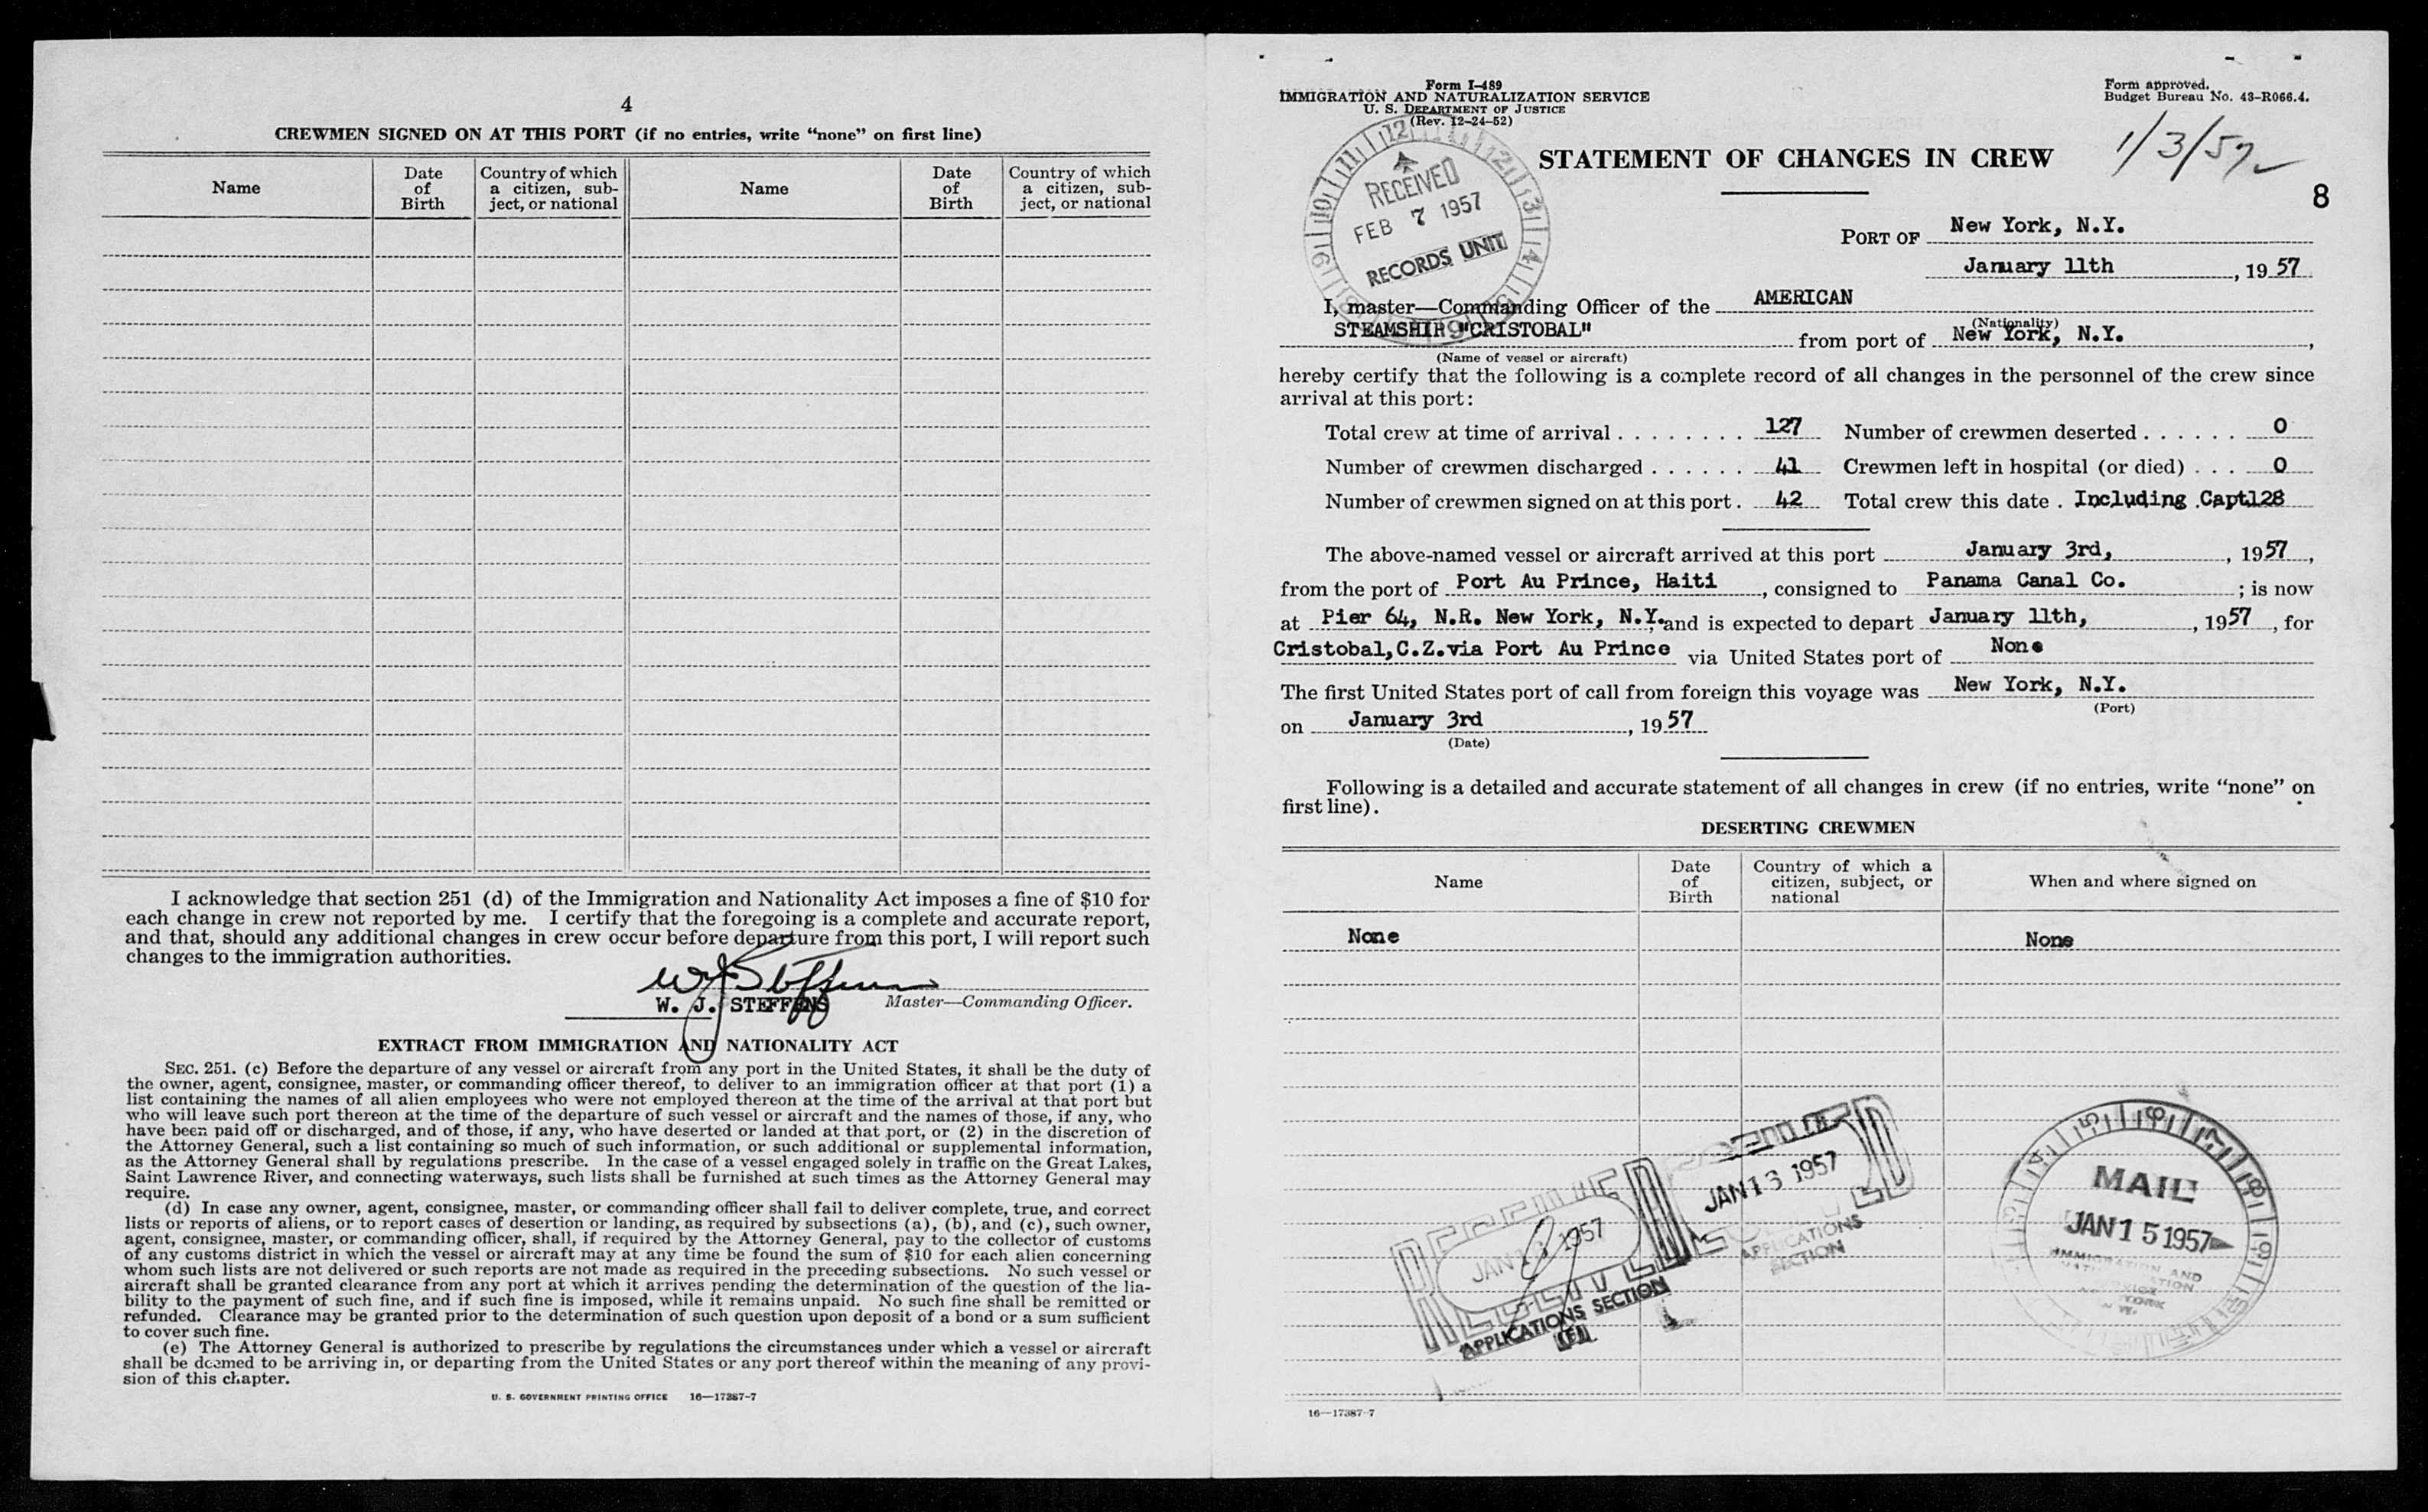 4
CREWMEN SIGNED ON AT THIS PORT (if no entries, write “none” on first line)
Name
Date of Birth
Country of which a citizen, sub-
ject, or national
Name
Date of Birth
Country of which a citizen, sub-
ject, or national
I acknowledge that section 251 (d) of the Immigration and Nationality Act imposes a fine of $10 for
each change in crew not reported by me. I certify that the foregoing is a complete and accurate report,
and that, should any additional changes in crew occur before departure from this port, I will report such
changes to the immigration authorities.
W J Steffens
W. J. STEFFENS Master—Commanding Officer.
EXTRACT FROM IMMIGRATION AND NATIONALITY ACT
SEC. 251. (c) Before the departure of any vessel or aircraft from any port in the United States, it shall be the duty of
the owner, agent, consignee, master, or commanding officer thereof, to deliver to an immigration officer at that port (1) a
list containing the names of all alien employees who were not employed thereon at the time of the arrival at that port but
who will leave such port thereon at the time of the departure of such vessel or aircraft and the names of those, if any, who
have been paid off or discharged, and of those, if any, who have deserted or landed at that port, or (2) in the discretion of
the Attorney General, such a list containing so much of such information, or such additional or supplemental information,
as the Attorney General shall by regulations prescribe. In the case of a vessel engaged solely in traffic on the Great Lakes,
Saint Lawrence River, and connecting waterways, such lists shall be furnished at such times as the Attorney General may
require.
(d) In case any owner, agent, consignee, master, or commanding officer shall fail to deliver complete, true, and correct
lists or reports of aliens, or to report cases of desertion or landing, as required by subsections (a), (b), and (c), such owner,
agent, consignee, master, or commanding officer, shall, if required by the Attorney General, pay to the collector of customs
of any customs district in which the vessel or aircraft may at any time be found the sum of $10 for each alien concerning
whom such lists are not delivered or such reports are not made as required in the preceding subsections. No such vessel or
aircraft shall be granted clearance from any port at which it arrives pending the determination of the question of the lia-
bility to the payment of such fine, and if such fine is imposed, while it remains unpaid. No such fine shall be remitted or
refunded. Clearance may be granted prior to the determination of such question upon deposit of a bond or a sum sufficient
to cover such fine.
(e) The Attorney General is authorized to prescribe by regulations the circumstances under which a vessel or aircraft
shall be deemed to be arriving in, or departing from the United States or any port thereof within the meaning of any provi-
sion of this chapter.
U. S. GOVERNMENT PRINTING OFFICE 16—17387-7
Form I-489
IMMIGRATION AND NATURALIZATION SERVICE
U. S. DEPARTMENT OF JUSTICE
(Rev. 12-24-52)
Form approved.
Budget Bureau No. 43-R066.4.
1/3/57
STATEMENT OF CHANGES IN CREW
8
RECEIVED
FEB 7 1957
RECORDS UNIT
PORT OF New York, N.Y.
January 11th, 1957
I, master—Commanding Officer of the AMERICAN
(Nationality)
STEAMSHIP "CRISTOBAL" from port of New York, N.Y.,
(Name of vessel or aircraft)
hereby certify that the following is a complete record of all changes in the personnel of the crew since
arrival at this port:
Total crew at time of arrival . . . . . . . . 127 Number of crewmen deserted . . . . . . 0
Number of crewmen discharged . . . . . . 41 Crewmen left in hospital (or died) . . . 0
Number of crewmen signed on at this port . 42 Total crew this date . Including Capt128
The above-named vessel or aircraft arrived at this port January 3rd, , 1957,
from the port of Port Au Prince, Haiti, consigned to Panama Canal Co. ; is now
at Pier 64, N.R. New York, N.Y. and is expected to depart January 11th, , 1957, for
Cristobal,C.Z.via Port Au Prince via United States port of None
The first United States port of call from foreign this voyage was New York, N.Y.
(Port)
on January 3rd, 1957
(Date)
Following is a detailed and accurate statement of all changes in crew (if no entries, write “none” on
first line).
DESERTING CREWMEN
Name
Date of Birth
Country of which a citizen, subject, or national
When and where signed on
None None
RECEIVED
JAN 13 1957
APPLICATIONS
SECTION
RECEIVED
1957
APPLICATIONS SECTION
MAIL
JAN 15 1957
16—17387-7